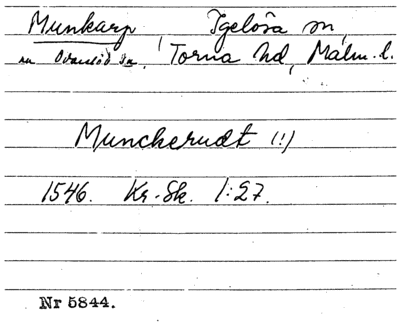 Munkarp, Igelösa sn,
Torna hd, Malm. l.
Munckerudt (!)
1546. Kr. Sk. 1:27.
Nr 5844.